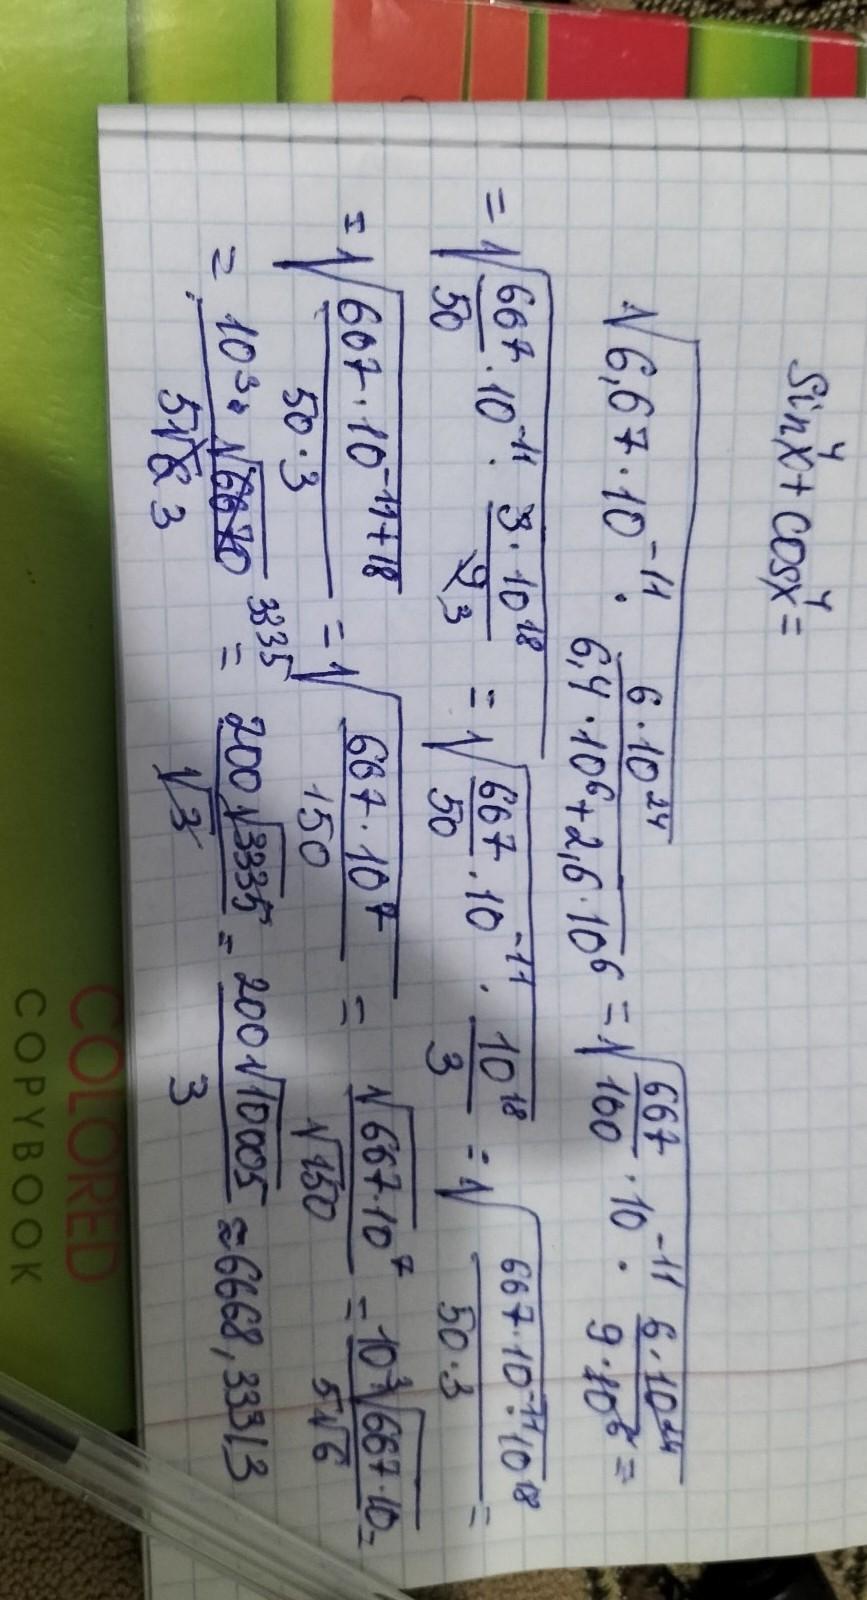 sin⁴x + cos⁴x =
√(6,67 · 10⁻¹¹ · (6 · 10²⁴)/(6,4 · 10⁶ + 2,6 · 10⁶)) = √(667/100 · 10⁻¹¹ · (6 · 10²⁴)/(9 · 10⁶)) =
= √(667/50 · 10⁻¹¹ · (3 · 10¹⁸)/(9 3)) = √(667/50 · 10⁻¹¹ · 10¹⁸/3) = √((667 · 10⁻¹¹ · 10¹⁸)/(50 · 3)) =
= √((667 · 10⁻¹¹⁺¹⁸)/(50 · 3)) = √((667 · 10⁷)/150) = √(667 · 10⁷)/√150 = (10³√(667 · 10))/(5√6) =
= (10³ · √6670 3335)/(5√6 3) = (200√3335)/√3 = (200√10005)/3 ≈ 6668,33313
COLORED
COPYBOOK